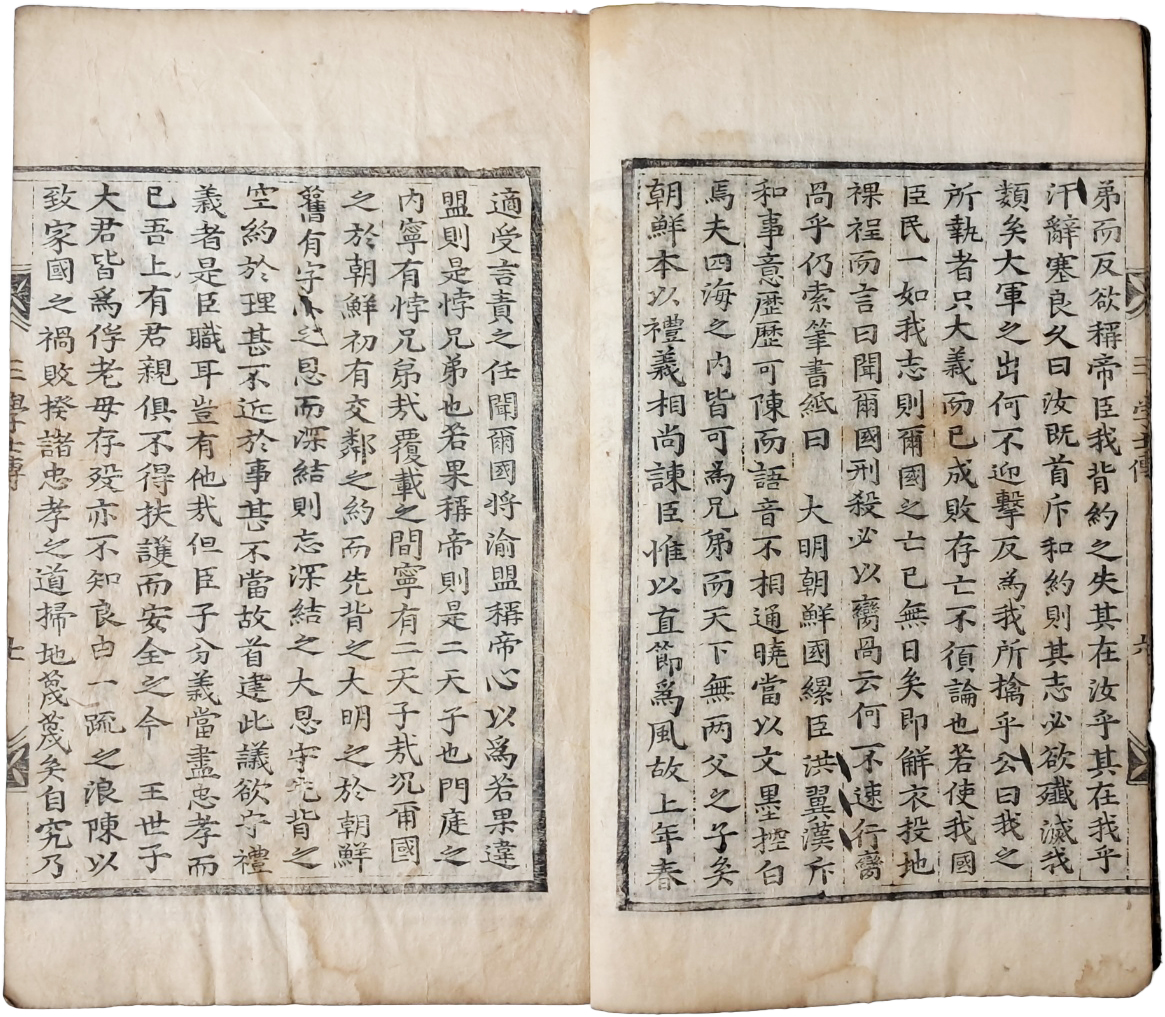 弟而反欲稱帝臣我背約之失其在汝乎其在我乎
汗辭塞良久曰汝既首斥和約則其志必欲殲滅我
類矣大軍之出何不迎擊反為我所擒乎公曰我之
所執者只大義而已成敗存亡不須論也若使我國
臣民一如我志則爾國之亡已無日矣即解衣投地
裸裎而言曰聞爾國刑殺必以臠咼云何不速行臠
咼乎仍索筆書紙曰 大明朝鮮國縲臣洪翼漢斥
和事意歷歷可陳而語音不相通曉當以文墨控白
焉夫四海之內皆可為兄弟而天下無两父之子矣
朝鮮本以禮義相尚諫臣惟以直節爲風故上年春
三學士傳
六
適受言責之任聞爾國將渝盟稱帝心以爲若果違
盟則是悖兄弟也若果稱帝則是二天子也門庭之
內寧有悖兄弟㢤覆載之間寧有二天子㢤況甭國
之於朝鮮初有交鄰之約而先背之大明之於朝鮮
舊有字小之恩而深結則忘深結之大恩守先背之
空約於理甚不近於事甚不當故首建此議欲守禮
義者是臣職耳豈有他㢤但臣子分義當盡忠孝而
已吾上有君親俱不得扶護而安全之今 王世子
大君皆爲俘老母存歿亦不知良由一䟽之浪陳以
致家國之禍敗揆諸忠孝之道掃地蔑蔑矣自究乃
三學士傳
七